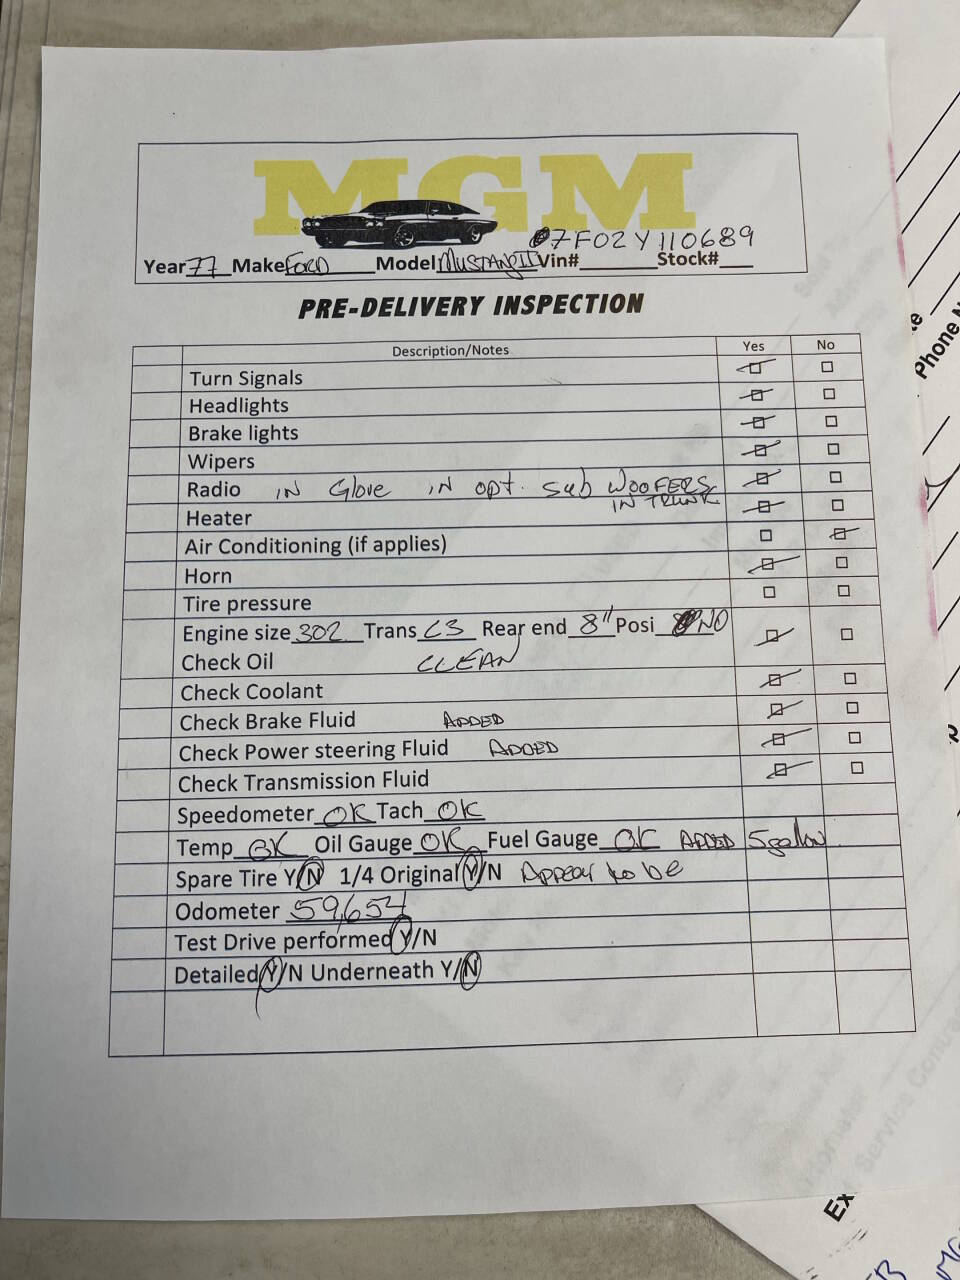 MGM
7F02Y110689
Year 77 Make FORD Model MUSTANG II Vin# Stock#
PRE-DELIVERY INSPECTION
Description/Notes Yes No
Turn Signals
Headlights
Brake lights
Wipers
Radio IN Glove IN opt. sub WOOFERS
IN TRUNK
Heater
Air Conditioning (if applies)
Horn
Tire pressure
Engine size 302 Trans C3 Rear end 8" Posi NO
Check Oil CLEAN
Check Coolant
Check Brake Fluid ADDED
Check Power steering Fluid ADDED
Check Transmission Fluid
Speedometer OK Tach OK
Temp OK Oil Gauge OK Fuel Gauge OK ADDED 5 gallon
Spare Tire Y/N 1/4 Original Y/N Appear to be
Odometer 59,654
Test Drive performed Y/N
Detailed Y/N Underneath Y/N
Phone N
Ex